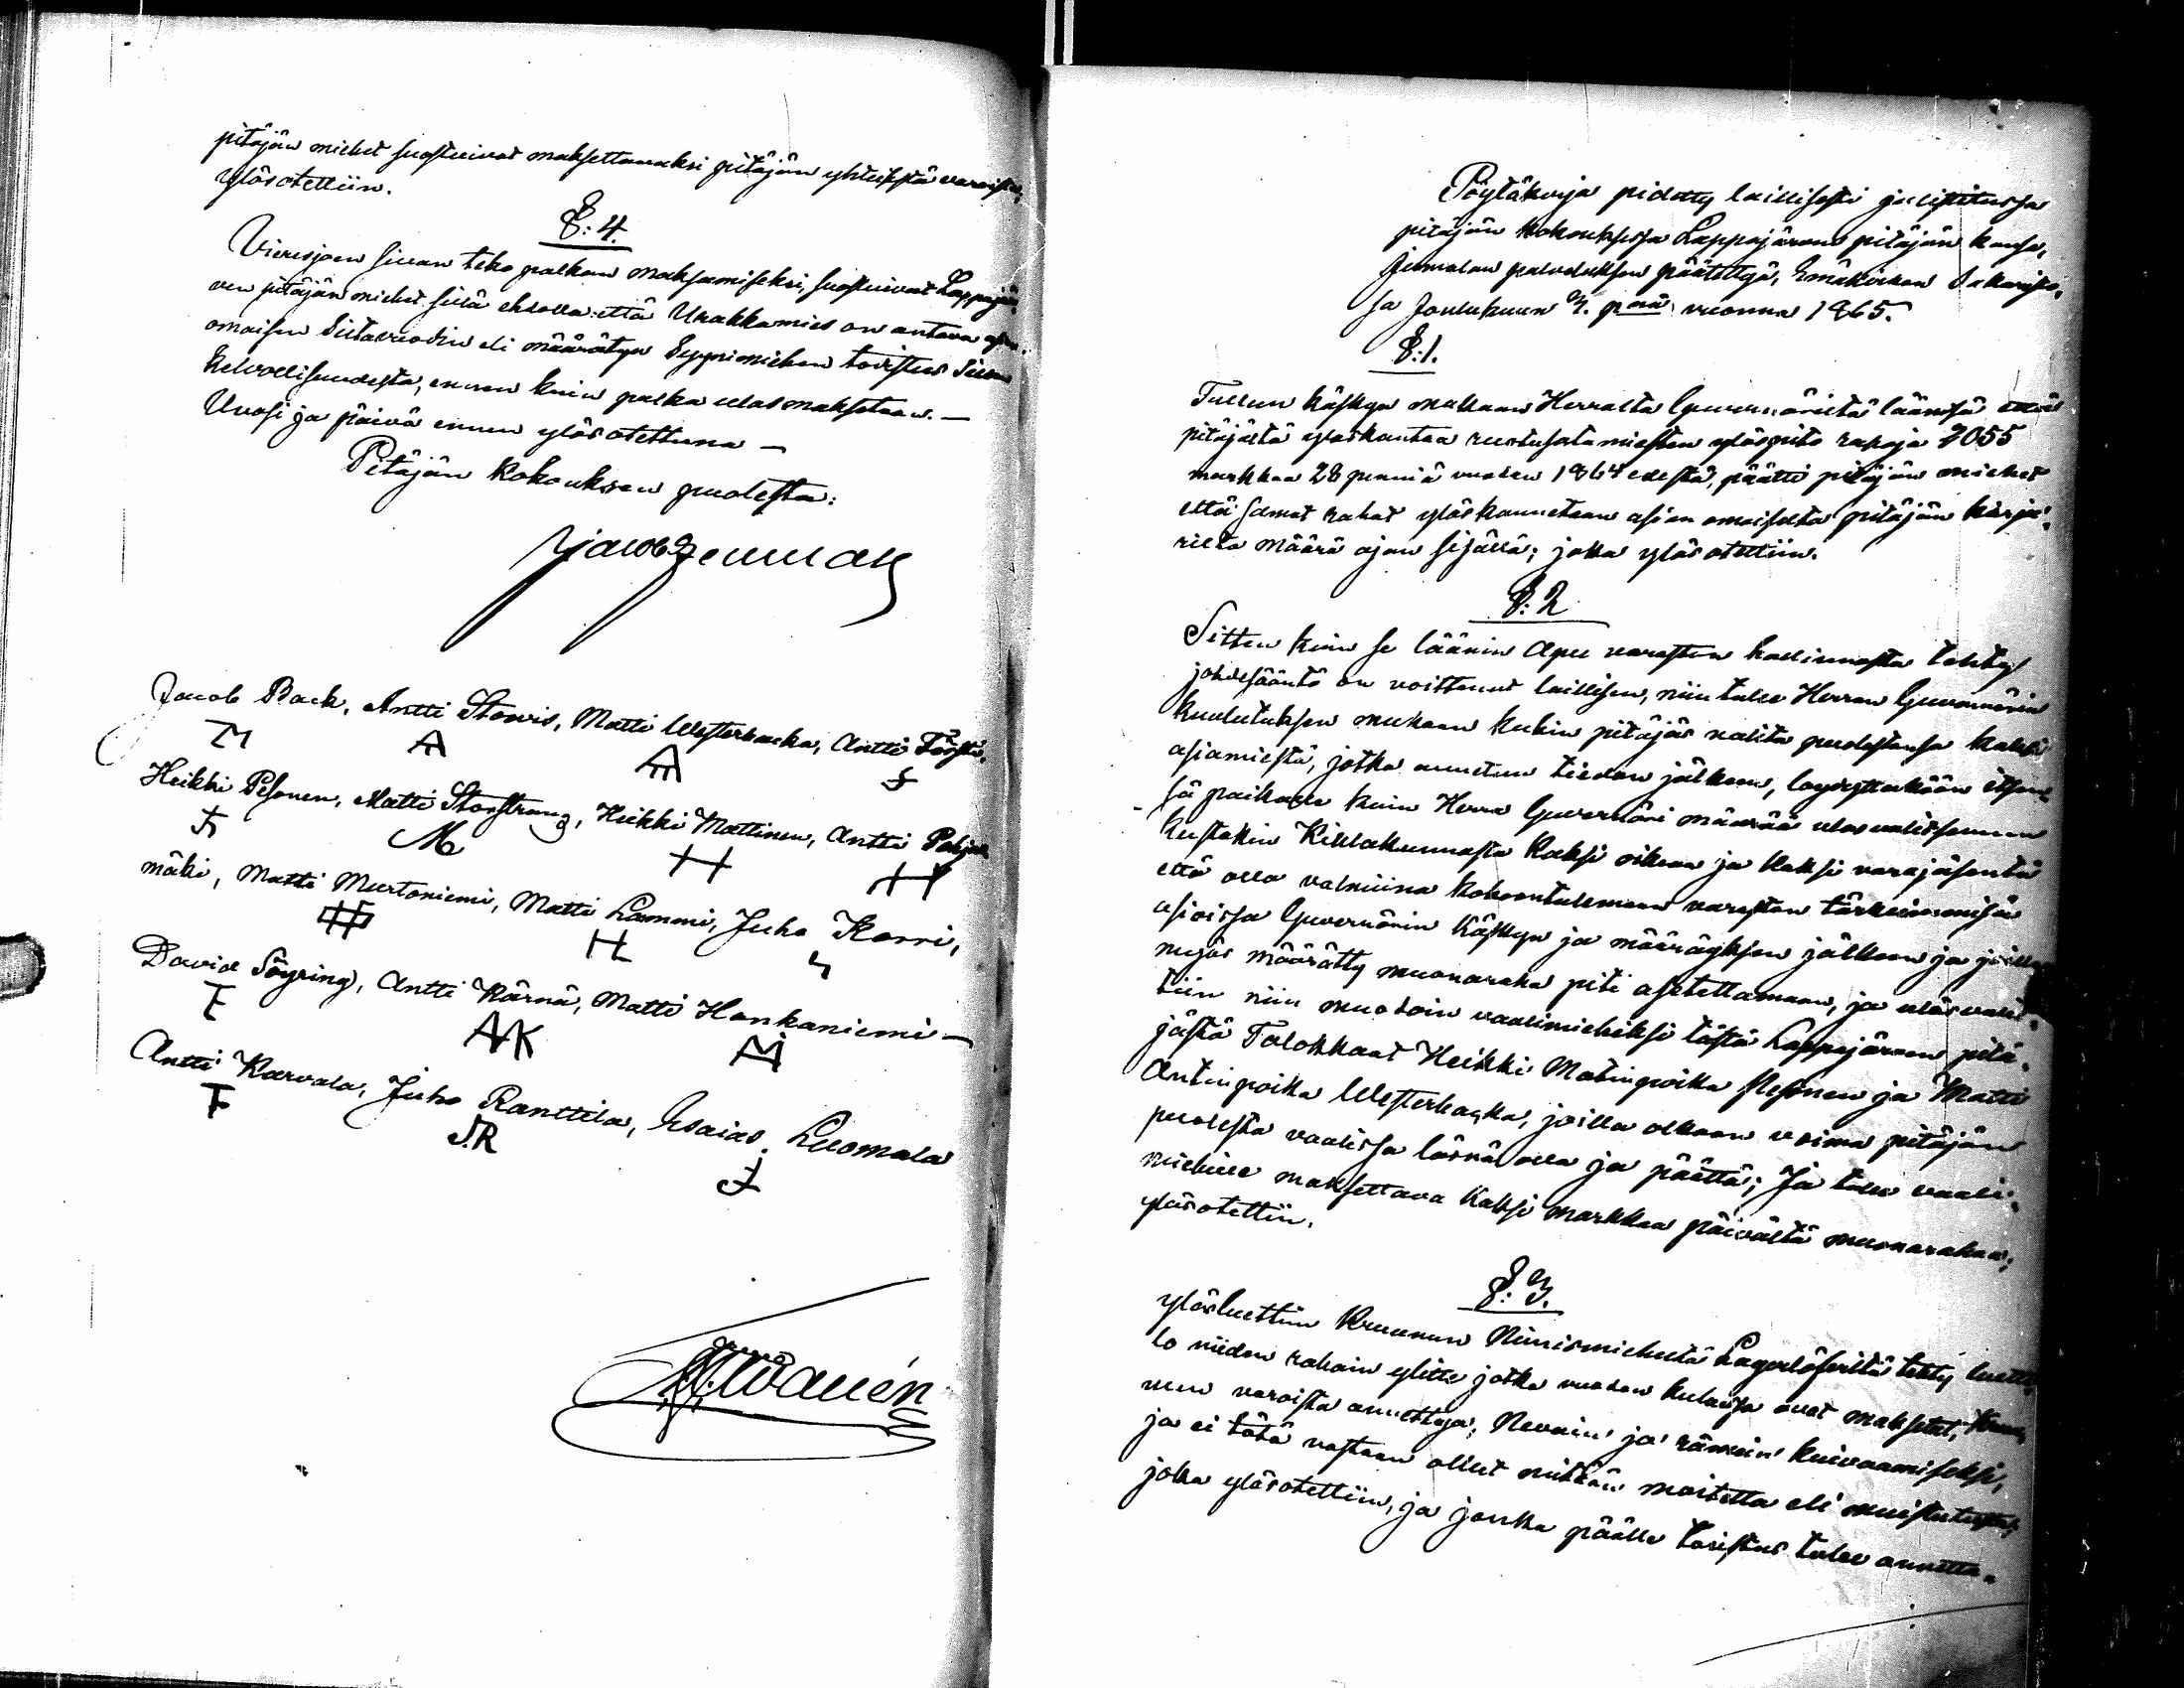 pitäjän miehet suostuivat maksettavaksi pitäjän yhteisistä varoista,
ylösotettiin.
§: 4.
Vierisjoen sillan teko palkan maksamiseksi, suostuivat Lappajär-
ven pitäjän miehet sillä ehdolla että Urakkamies on antava asian-
omaisen Siltavuodin eli määrätyn Syynimiehen todistus Sillan
kelvollisuudesta, ennen kuin palka ulos maksetaan. —
Vuosi ja päivä ennen ylösotettuna —
Pitäjän Kokouksen puolesta:
Jacob
Jacob Back, Antti Stowis, Matti Westerbacka, Antti
M A AM
Heikki Pesonen, Matti Storstrang, Heikki Mattinen, Antti Pohja
M H H
mäki, Matti Murtoniemi, Matti Lammi, Juho Korri,
H
David Söyring, Antti Kärnä, Matti Honkaniemi —
F AK M
Antti Karvala, Juho Ranttila, Esaias Luomala
F J.R J
Pöytäkirja pidetty laillisesti julistetussa
pitäjän kokouksessa Lappajärven pitäjän kansa,
Jumalan palveluksen päätettyä, Emäkirkon Sakaristo,
sa Joulukuun 3. pnä vuonna 1865.
§: 1.
Tullun käskyn mukaan Herralta Guvernöriltä läänissä
pitäjästä ylöskantaa ruotusotamiesten ylöspito rahoja 2055
markkaa 28 penniä vuoden 1864 edestä, päätti pitäjän miehet
että samat rahat ylöskannetaan asian omaiselta pitäjän kirju-
rilta määrä ajan sisällä; joka ylösotettiin.
§: 2
Sitten kuin se läänin Apu varaston hallinnosta tehty
johdesääntö on voittanut laillisen, niin tulee Herran Guvernörin
kuulutuksen mukaan kukin pitäjäs valita puolestansa kaksi
asiamiestä, jotka annetun tiedon jälkeen, löydyttäköön itsen-
sä paikalla kuin Herra Guvernöri määrää ulosvalitsemaan
kustakin Kihlakunnasta kaksi oikeaa ja kaksi varajäsentä
että olla valmiina kokoontulemaan varaston tärkeimmisä
asioissa Guvernörin käskyn ja määräyksen jälkeen ja joille
myös määrätty muonaraha piti asetettaman, ja ulosvalit-
tiin niin muodoin vaalimiehiksi tästä Lappajärven pitä-
jästä Talokkaat Heikki Matinpoika Pesonen ja Matti
Antinpoika Westerbacka, joilla olkoon voima pitäjän
puolesta vaalissa läsnä olla ja päättä; Ja tulee vaali-
miehille maksettava kaksi markkaa päivältä muonarahaa;
ylösotettiin.
§: 3.
ylösluettiin Kruunun Nimismieheltä Lagerlöfiltä tehty luette-
lo niiden rahain ylitte jotka vuoden kuluessa ovat maksetut,
nun varoista annettuja, Nevain ja rämein kuivaamiseksi,
ja ei tätä vastaan ollut mitään moitetta eli muistutusta;
joka ylösotettiin, ja jonka päälle todistus tulee annetta-